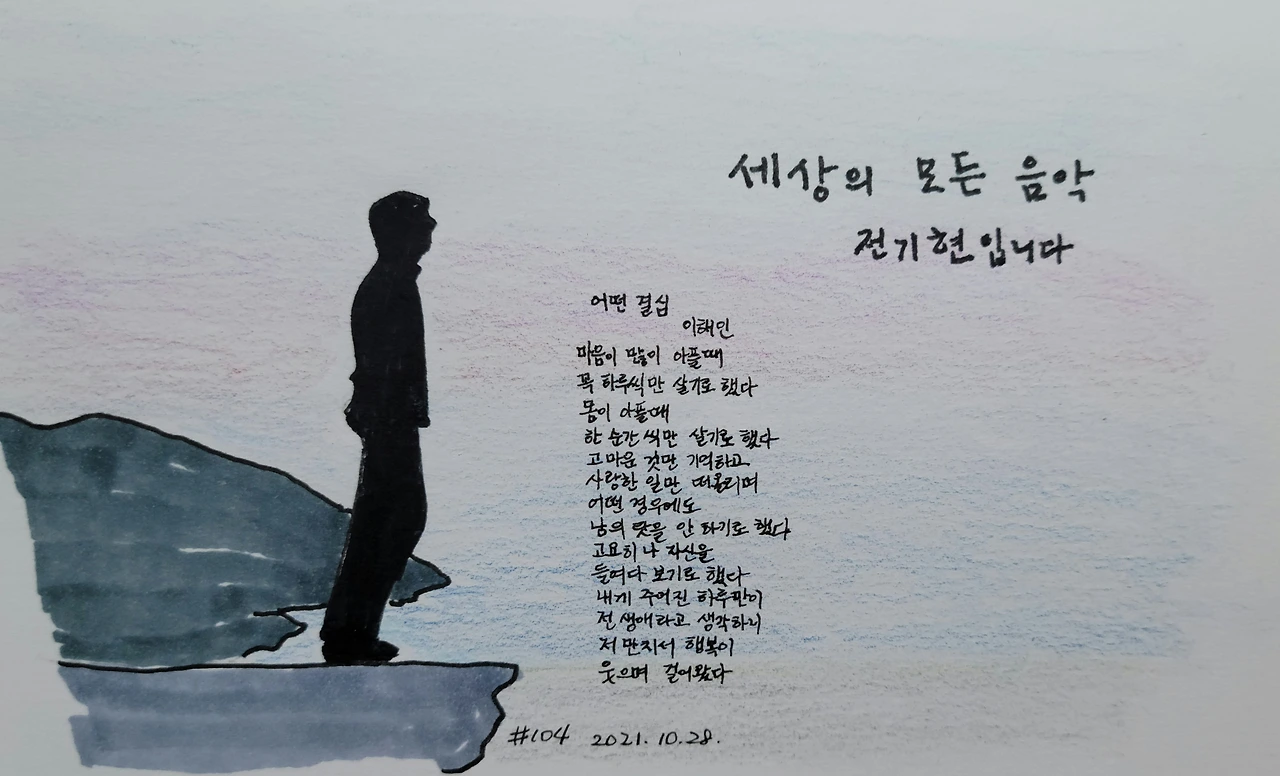 세상의 모든 음악
전기현입니다
어떤 결심
이해인
마음이 많이 아플때
꼭 하루씩만 살기로 했다
몸이 아플때
한 순간씩만 살기로 했다
고마운 것만 기억하고
사랑한 일만 떠올리며
어떤 경우에도
남의 탓을 안 하기로 했다
고요히 나 자신을
들여다 보기로 했다
내게 주어진 하루만이
전 생애라고 생각하니
저만치서 행복이
웃으며 걸어왔다
#104 2021.10.28.